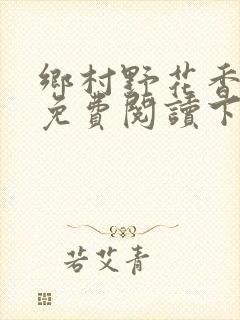 鄉村野花香
免費閱讀下
若艾青